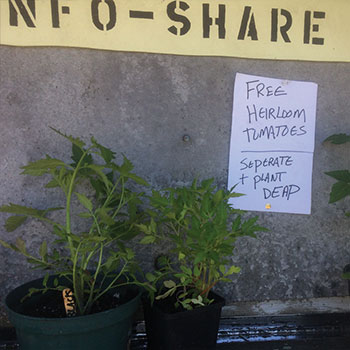 NFO-SHARE
FREE
HEIRLOOM
TOMATOES
SEPERATE
+ PLANT
DEAP